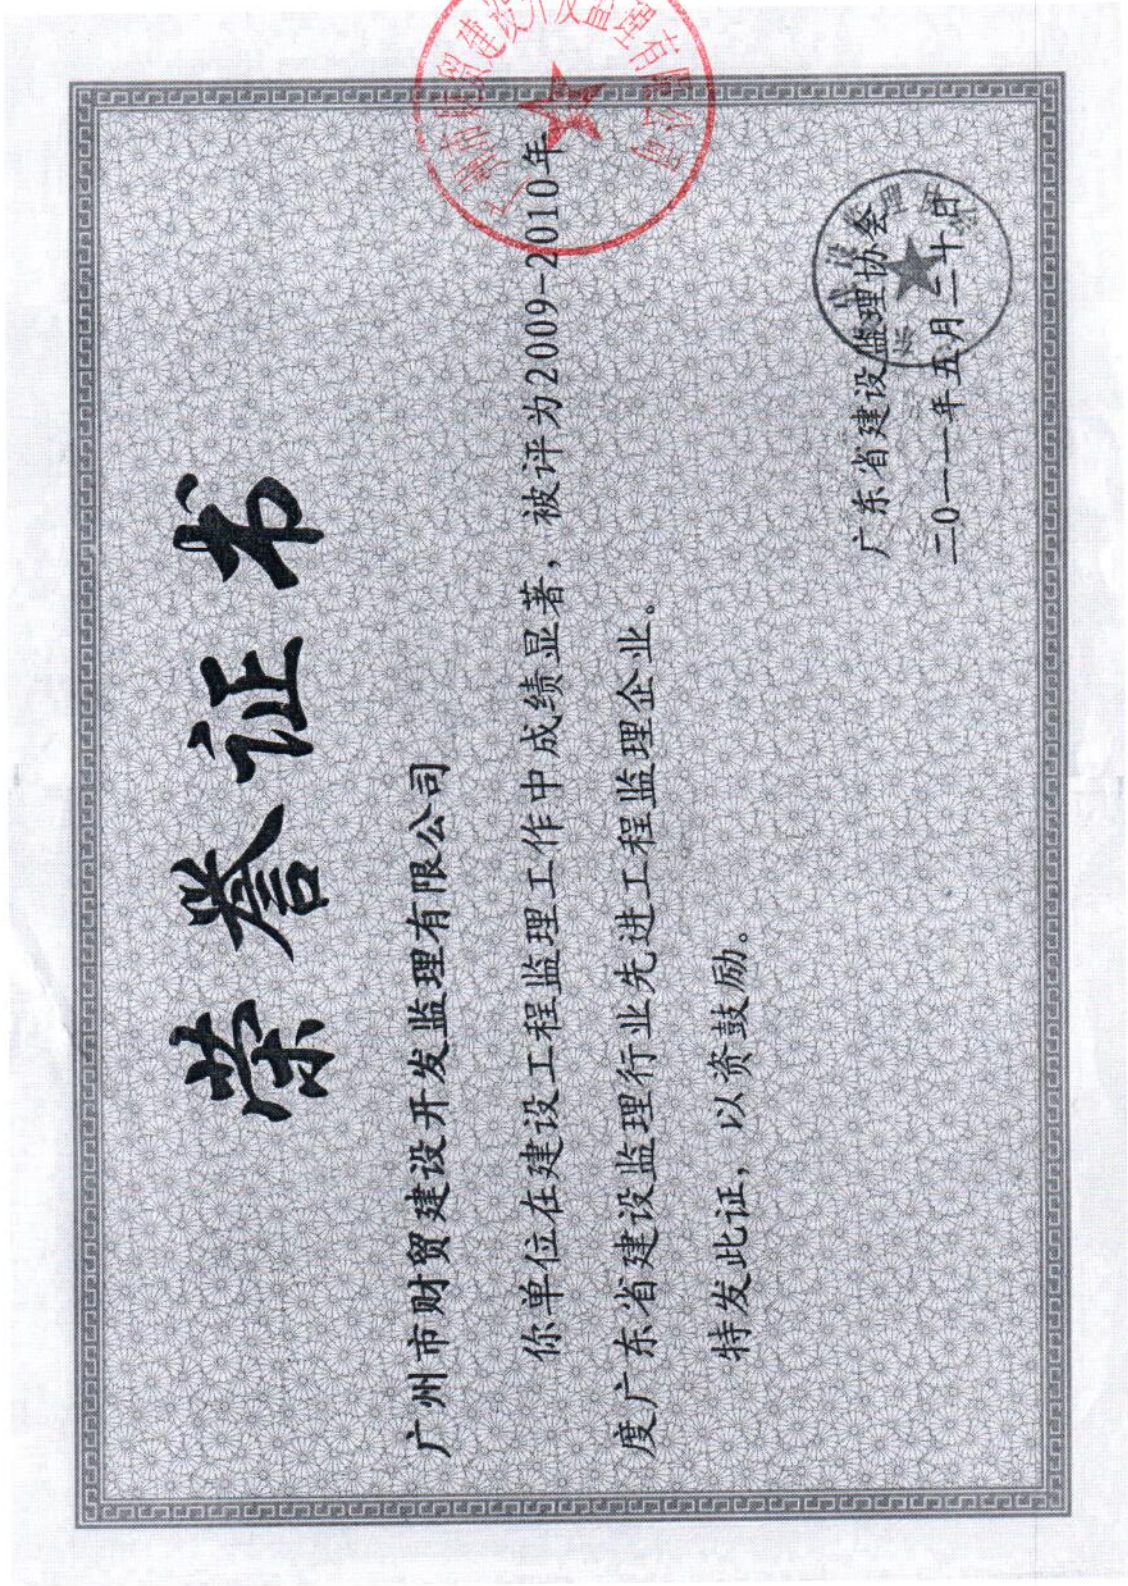 荣誉证书
广州市财贸建设开发监理有限公司
你单位在建设工程监理工作中成绩显著，被评为2009-2010年
度广东省建设监理行业先进工程监理企业。
特发此证，以资鼓励。
广东省建设监理协会
二0一一年五月二十日
广州市财贸建设开发监理有限公司